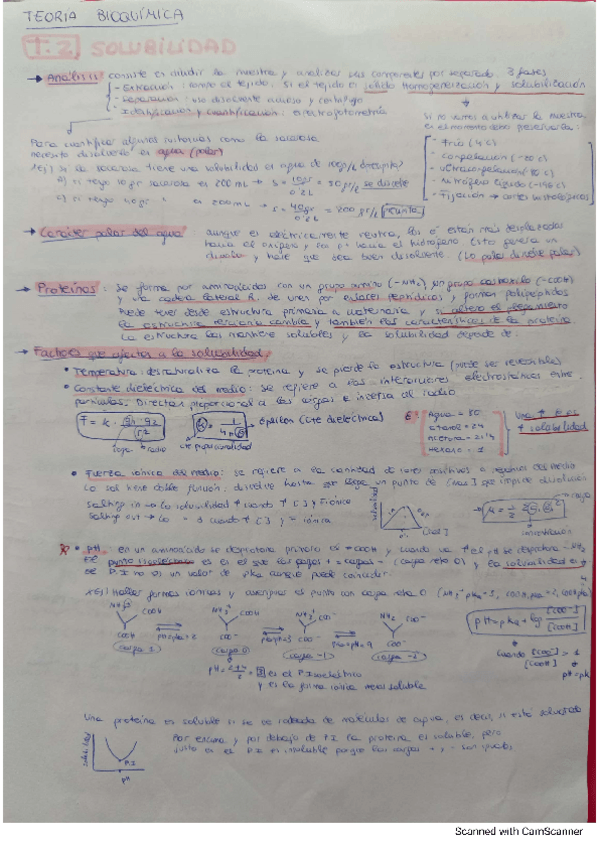 TEORIA BIOQUÍMICA
T.2 SOLUBILIDAD
→ Análisis: consiste en la muestra y analizar sus componentes por separado. 3 fases
- Extracción: rompo el tejido. Si el tejido es sólido homogeneización y solubilización
- Separación: uso disolvente y centrifugo
- Identificación y cuantificación: espectrofotometría
Para cuantificar algunas sustancias como la sacarosa
necesito disolverlo en agua (polar)
Ej) si la sacarosa tiene una solubilidad en agua de
a) si tengo 10 gr sacarosa en 200 mL → s = = 50 gr/L se disuelve
b) si tengo 40 gr " en 200 mL → s = 40gr / 0'2L = 200 gr/L
Si no vamos a utilizar la muestra
en el momento debo preservarla:
- Frío (4 c)
- congelación (-20 c)
- ultracongelación (-80 c)
- nitrógeno líquido
- Fijación → cortes histológicos
→ Carácter polar del agua aunque es eléctricamente neutra, los e⁻ están más desplazados
hacia el oxígeno y los p⁺ hacia el hidrógeno. Esto genera un
y hace que sea buen disolvente. (Lo polar disuelve polar)
→ Proteínas: se forma por aminoácidos con un grupo amino (-NH₂), un grupo carboxilo (-COOH)
y una cadena lateral R. Se unen por enlaces peptídicos y forman polipéptidos
Puede tener desde estructura primaria a cuaternaria y si altero el plegamiento
la estructura terciaria cambia y también las características de la proteína
La estructura las mantiene solubles y la solubilidad depende de:
→ Factores que afectan a la solubilidad:
• Temperatura: desnaturaliza la proteína y se pierde la estructura (puede ser reversible)
• Constante dieléctrica del medio: se refiere a las interacciones electrostáticas entre
partículas. Directam proporcional a las cargas e inversa al radio
F = k · q1·q2 / r²
carga radio
k = 1 / 4π
cte proporcionalidad
épsilon (cte dieléctrica)
Agua = 80
etanol = 24
hexano = 1
una ↑ ε es
↑ solubilidad
• Fuerza iónica del medio: se refiere a la cantidad de iones positivos o negativos del medio
La sal tiene doble función, disuelve hasta que llega un punto de [max] que impide disolución
salting in → la solubilidad ↑ cuando ↑ [ ] y F iónica
salting out → cuando ↑ [ ] y F iónica
solubilidad
carga
concentración
• pH en un aminoácido se desprotona primero el -COOH y cuando ↑ el pH se desprotona -NH₂
El punto isoeléctrico es en el que las cargas + = cargas - (carga neta 0) y la solubilidad es ↓
el P.I no es un valor de pka aunque puede coincidir.
Ej) Hallar formas iónicas y averiguar el punto con carga neta 0
NH₃⁺ COOH
COOH
(carga 1)
NH₃⁺ COOH
COO⁻
(carga 0)
NH₃⁺ COO⁻
COO⁻
(carga -1)
pH=pka=9
NH₂ COO⁻
COO⁻
es el P. Isoeléctrico
y es la forma iónica menos soluble
pH = pka + log [COO⁻] / [COOH]
cuando [COO⁻] / [COOH] = 1
pH = pk
Una proteína es soluble si se ve rodeada de moléculas de agua, es decir, si está solvatada
Por encima y por debajo de P.I la proteína es soluble, pero
justo en el P.I es insoluble porque las cargas + y - son iguales
solubilidad
P.I
pH
Scanned with CamScanner